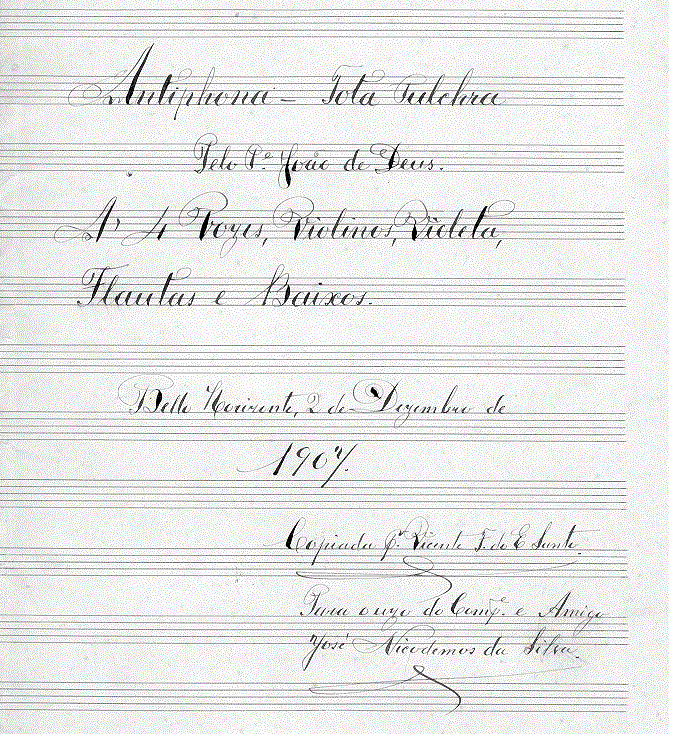 Antiphona – Tota Pulchra
Pelo P.e João de Deus.
A 4 Vozes, Violinos, Violeta,
Flautas e Baixos.
Bello Horizonte, 2 de Dezembro de
1907.
Copiada p.r Vicente F. do E. Santo.
Para o uzo do Comp.e e Amigo
José Nicodemos da Silva.